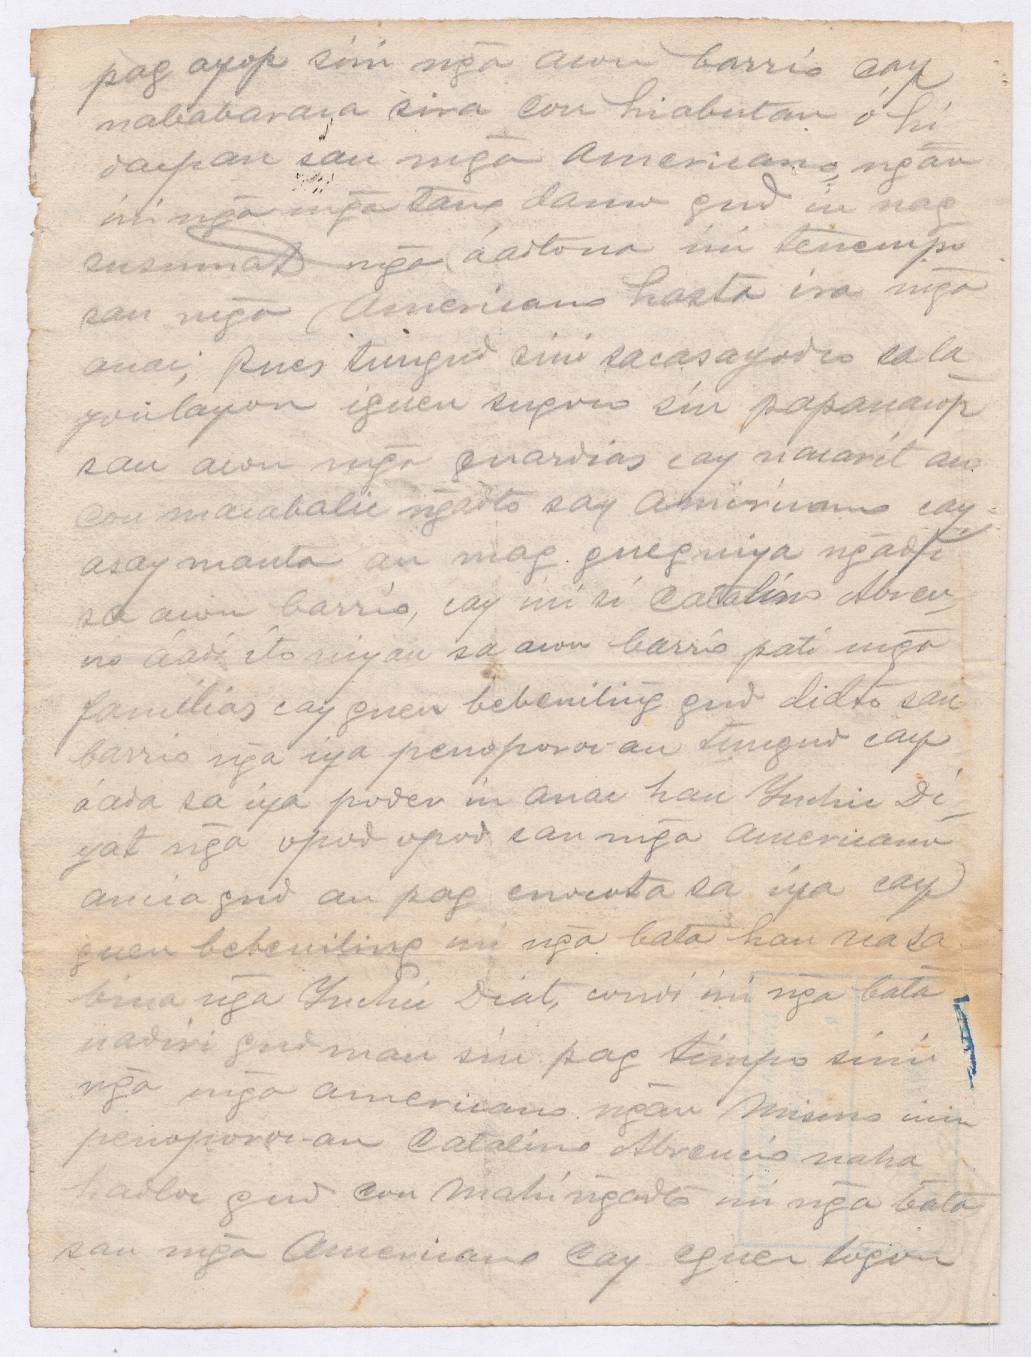 pag ayop sini nḡa acon barrio cay
nababaraca sira con hiabutan ó hi
dacpan san mḡa Americano, nḡan
ini nḡa mḡa tauo damo gud in nag
susumat nḡa áadtona ini tenempo
san mḡa Americano hasta ira mḡa
anac, Pues tungud sini sacasayodco sa la
yonlayon iguen sugoco sin papanaop
san acon mḡa guardias cay macarit an
con macabalic nḡadto say Americano cay
asay manta an mag guegniya nḡadi
sa acon barrio, cay ini si Catalino Abren
cio áadi ito niyan sa acon barrio pati mḡa
familias cay guen bebeniling gud didto san
barrio nḡa iya penoporocan tungud cay
áada sa iya poder in anac han Inchic Di
yat nḡa opod opod san mḡa Americano
amia gud an pag cnocota sa iya cay
guen bebeniling ini nḡa bata han nasa
bina nḡa Inchic Diat, condi ini nḡa bata
nadiri gud man sin pag timpo sinin
nḡa mḡa Americano nḡan Mismo inin
penoporocan Catalino Abrencio naha
hadloc gud con Mahinḡadto ini nḡa bata
san mḡa Americano Cay eguen togon